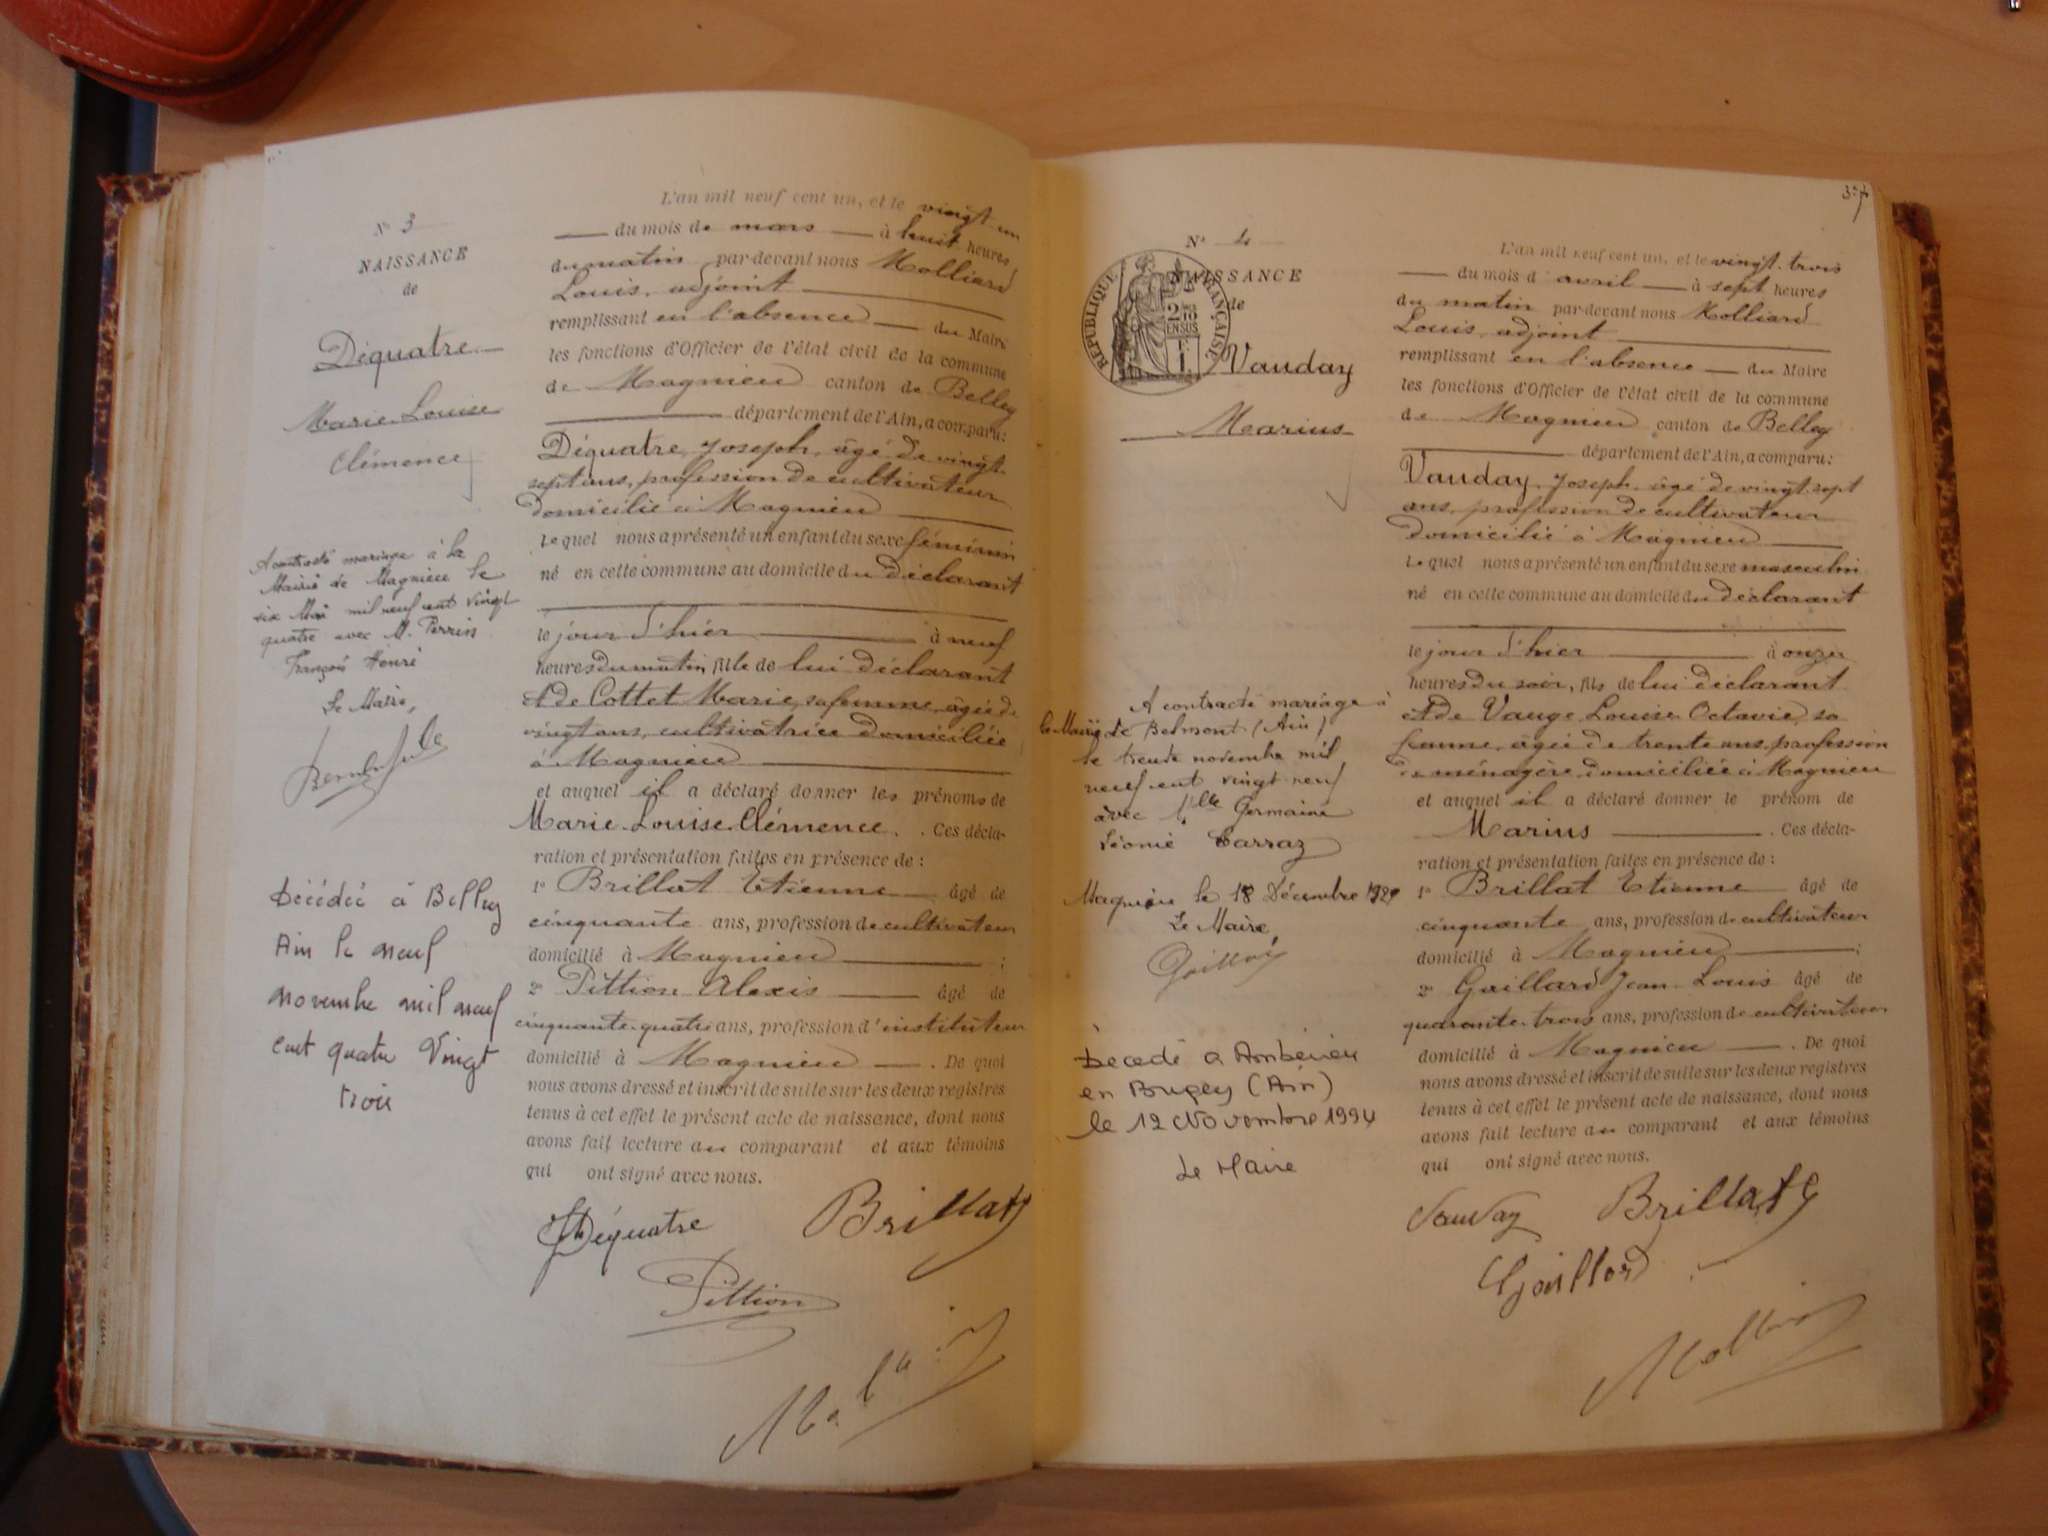 N° 3
NAISSANCE
de
Déquatre
Marie Louise
Clémence
A contracté mariage à la
Mairie de Magnieu le
six Mai mil neuf cent vingt
quatre avec M. Perrin
François Henri
Le Maire,
Décédée à Belley
Ain le neuf
novembre mil neuf
cent quatre Vingt
trois
L'an mil neuf cent un, et le vingt un
du mois de mars à huit heures
du matin par-devant nous Molliard
Louis, adjoint
remplissant en l'absence du Maire
les fonctions d'Officier de l'état civil de la commune
de Magnieu canton de Belley
département de l'Ain, a comparu:
Déquatre, Joseph, âgé de vingt-
sept ans, profession de cultivateur
domicilié à Magnieu
lequel nous a présenté un enfant du sexe féminin
né en cette commune au domicile du déclarant
le jour d'hier à neuf
heures du matin, fille de lui déclarant
et de Cottet Marie, sa femme, âgée de
vingt ans, cultivatrice domiciliée
à Magnieu
et auquel il a déclaré donner les prénoms de
Marie Louise Clémence. Ces décla-
ration et présentation faites en présence de :
1° Brillat Etienne âgé de
cinquante ans, profession de cultivateur
domicilié à Magnieu ;
2° Pittion Alexis âgé de
cinquante-quatre ans, profession d'instituteur
domicilié à Magnieu. De quoi
nous avons dressé et inscrit de suite sur les deux registres
tenus à cet effet le présent acte de naissance, dont nous
avons fait lecture au comparant et aux témoins
qui ont signé avec nous.
Déquatre Brillat
Pittion
37
N° 4
NAISSANCE
de
RÉPUBLIQUE FRANÇAISE
2/10 EN SUS
Vauday
Marius
A contracté mariage à
la Mairie de Belmont (Ain)
le trente novembre mil
neuf cent vingt neuf
avec Mlle Germaine
Léonie Carraz
Magnieu le 18 Décembre 1929
Le Maire,
Décédé a Ambérieu
en Bugey (Ain)
le 12 Novembre 1994
Le Maire
L'an mil neuf cent un, et le vingt-trois
du mois d'avril à sept heures
du matin par-devant nous Molliard
Louis, adjoint
remplissant en l'absence du Maire
les fonctions d'Officier de l'état civil de la commune
de Magnieu canton de Belley
département de l'Ain, a comparu:
Vauday, Joseph, âgé de vingt-sept
ans, profession de cultivateur
domicilié à Magnieu
lequel nous a présenté un enfant du sexe masculin
né en cette commune au domicile du déclarant
le jour d'hier à onze
heures du soir, fils de lui déclarant
et de Vauge Louise Octavie, sa
femme, âgée de trente ans, profession
de ménagère domiciliée à Magnieu
et auquel il a déclaré donner le prénom de
Marius. Ces décla-
ration et présentation faites en présence de :
1° Brillat Etienne âgé de
cinquante ans, profession de cultivateur
domicilié à Magnieu ;
2° Gaillard Jean-Louis âgé de
quarante-trois ans, profession de cultivateur
domicilié à Magnieu. De quoi
nous avons dressé et inscrit de suite sur les deux registres
tenus à cet effet le présent acte de naissance, dont nous
avons fait lecture au comparant et aux témoins
qui ont signé avec nous.
Vauday Brillat
Gaillard